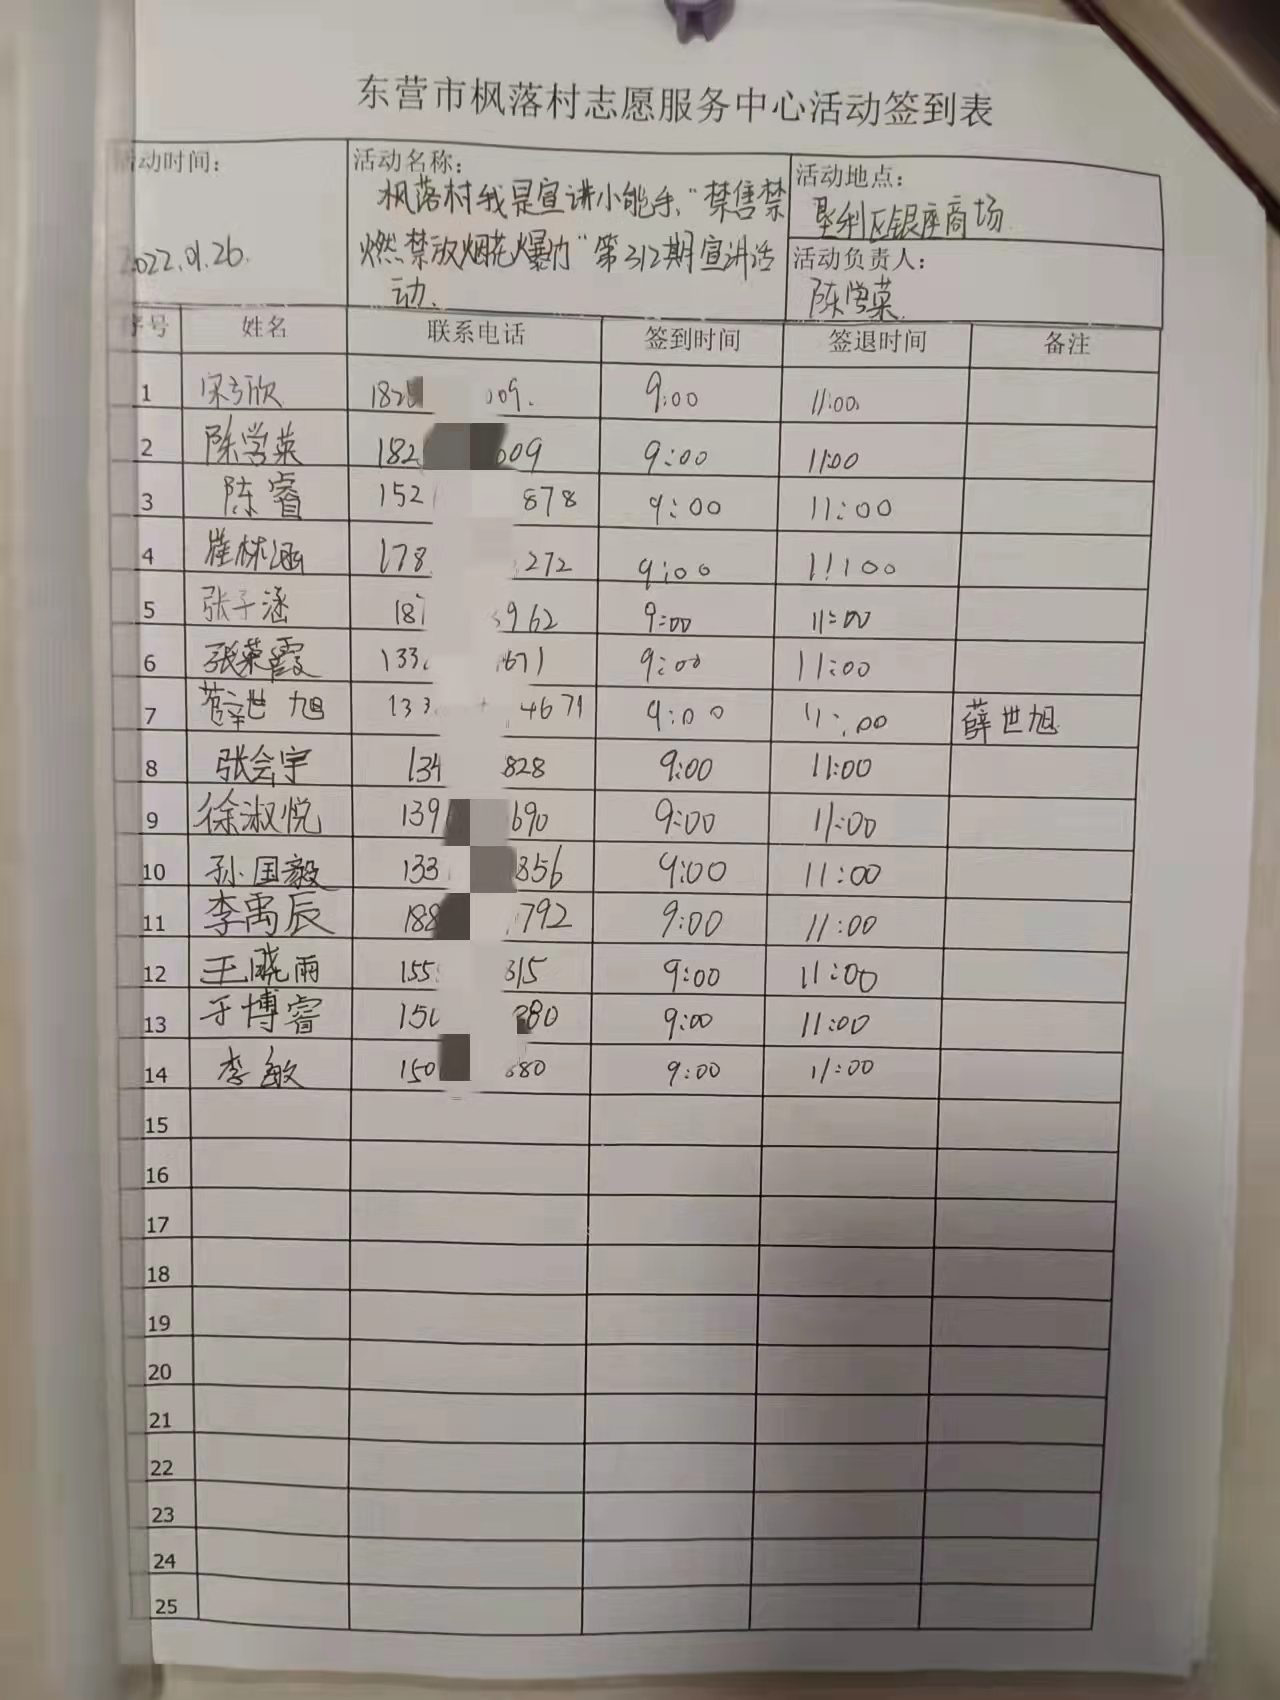 东营市枫落村志愿服务中心活动签到表
活动时间：
2022.01.26.
活动名称：
枫落村我是宣讲小能手，“禁售禁
燃禁放烟花爆竹”第312期宣讲活
动.
活动地点：
垦利区银座商场
活动负责人：
陈学英
序号 姓名 联系电话 签到时间 签退时间 备注
1 182 009. 9:00 11:00
2 陈学英 182 009 9:00 11:00
3 陈睿 152 878 9:00 11:00
4 崔林涵 178 272 9:00 11:00
5 张子涵 187 962 9:00 11:00
6 张荣霞 133 671 9:00 11:00
7 薛世旭 133 4671 9:00 11:00 薛世旭
8 张会宇 134 828 9:00 11:00
9 徐淑悦 139 690 9:00 11:00
10 孙国毅 133 856 9:00 11:00
11 李禹辰 188 792 9:00 11:00
12 王晓雨 155 315 9:00 11:00
13 于博睿 150 380 9:00 11:00
14 李敏 150 80 9:00 11:00
15
16
17
18
19
20
21
22
23
24
25